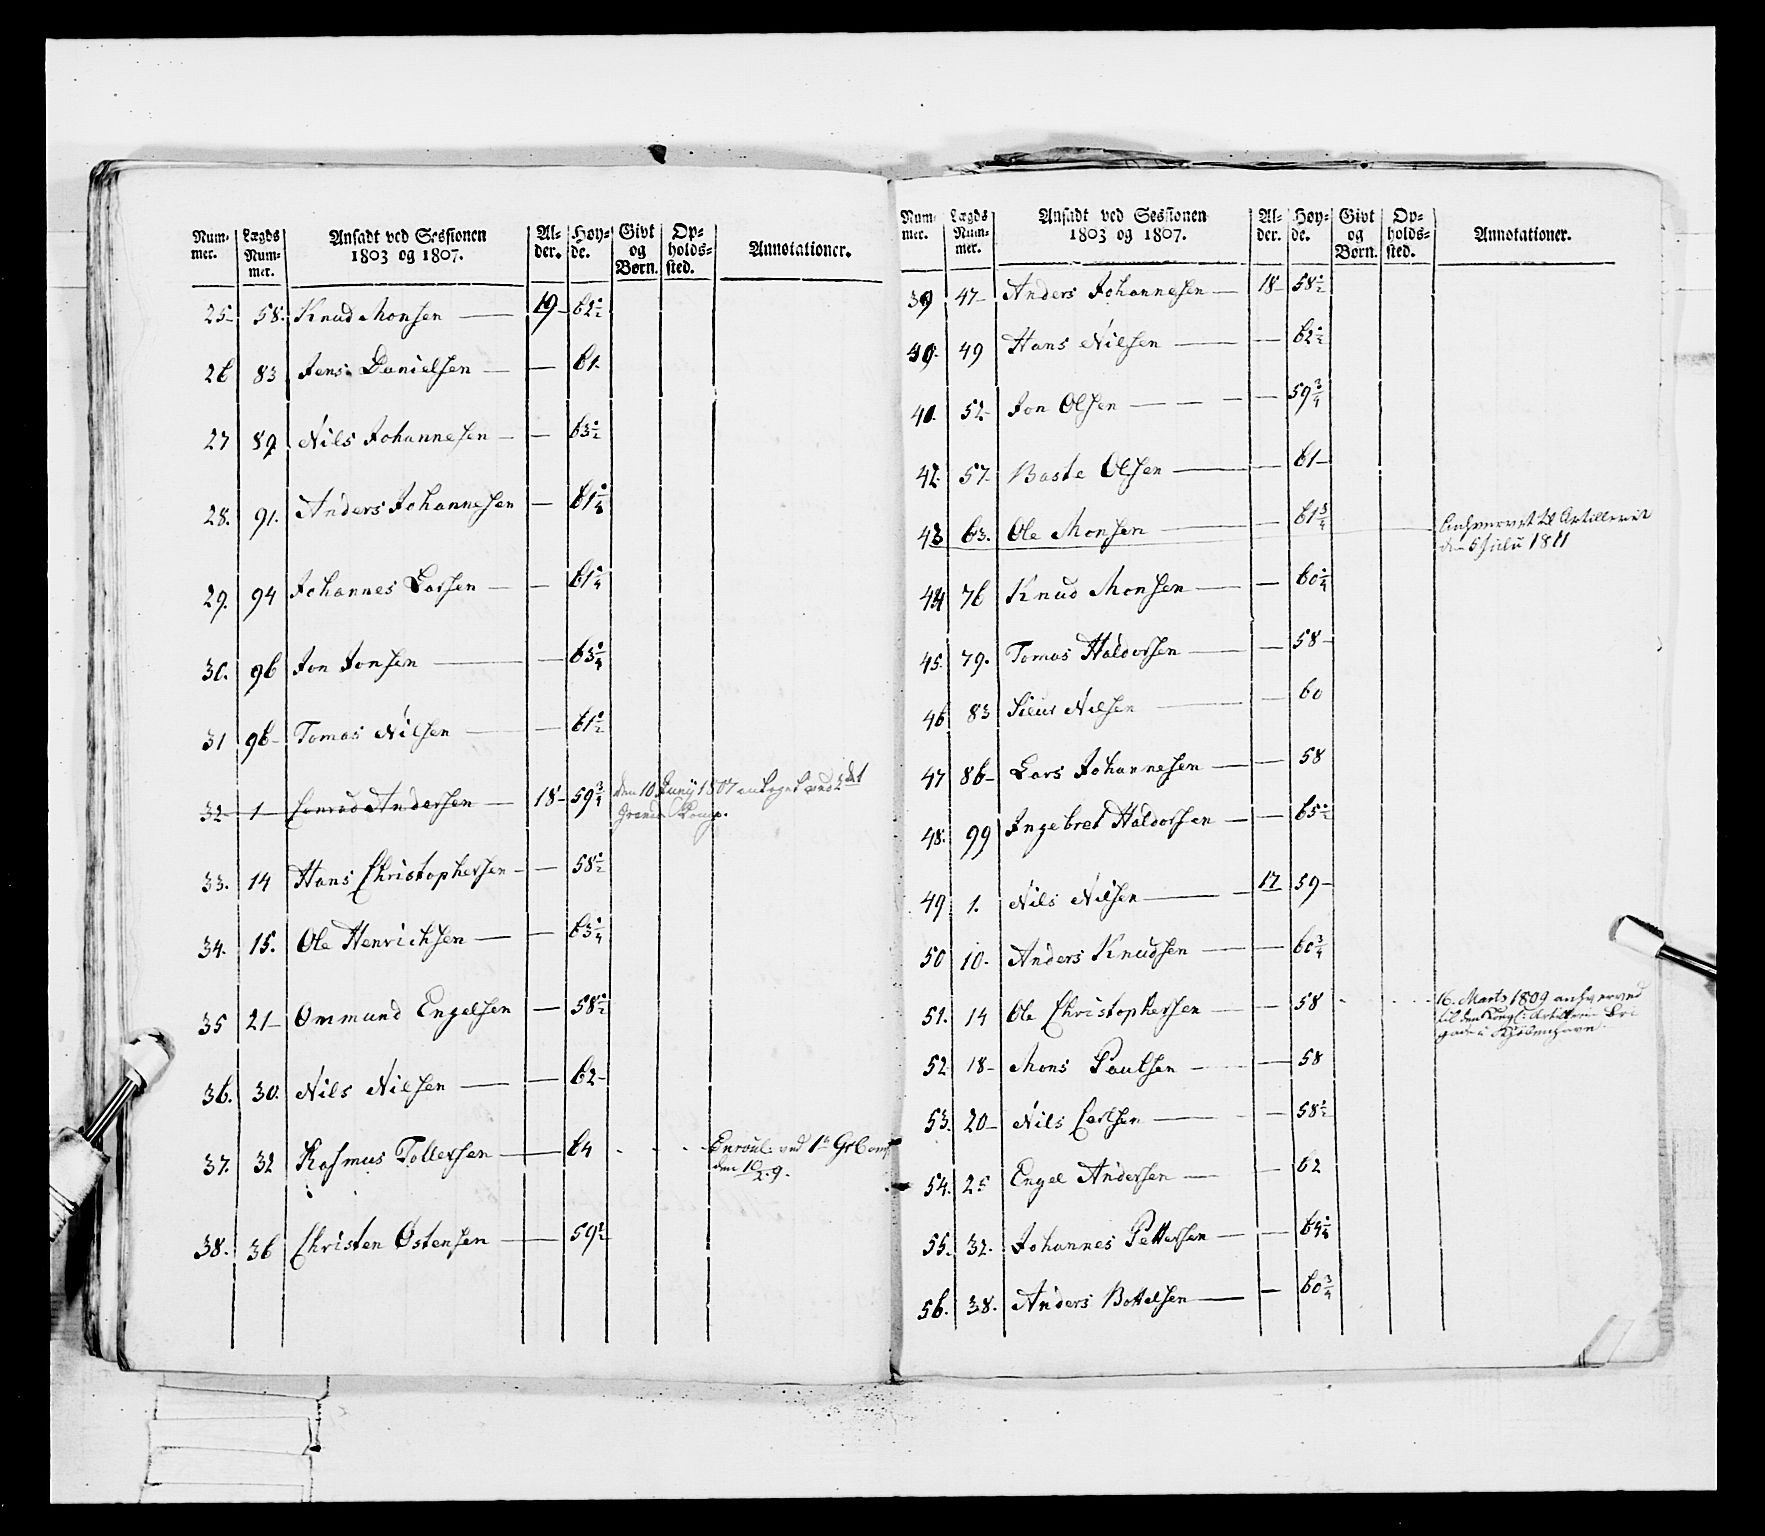 Num- Lægds Ansadt ved Sessionen Al- Høy- Givt Op- Annotationer.
mer. Num- 1803 og 1807. der. de. og holds-
mer. Børn. sted.
25- 58. Knud Monsen — 19- 62½
26 83 Jens Danielsen — — 61.
27 89. Nils Johannesen — — 63½
28. 91. Anders Johannesen — 61¼
29. 94 Johannes Larsen — — 61¼
30. 96 Jon Jonsen — — 63¼
31 96- Tomas Nilsen — — 61½
32 1 Conrad Andersen — 18- 59¾ den 10 Junij 1807 antaget ved 2det
Grenad. Komp.
33. 14 Hans Christophersen - — 58½
34. 15. Ole Henrichsen — — 63¼
35 21- Ommund Engelsen — 58½
36. 30. Nils Nilsen — — 62-
37. 32 Rasmus Tollersen — 64 - - - Enroul. ved 1te GrComp
den 10/2. 9.
38. 36 Christen Østensen — 59½
Num- Lægds Ansadt ved Sessionen Al- Høy- Givt Op- Annotationer.
mer. Num- 1803 og 1807. der. de. og holds-
mer. Børn. sted.
39 47- Anders Johannesen — 18- 58½
40. 49 Hans Nilsen — — 62½
41. 52- Jon Olsen — — - — 59¾
42. 57- Baste Olsen — — 61-
43 63. Ole Monsen — — 61¾ Anhvervet til Artilleriet
den 5 Julii 1811
44 76 Knud Monsen — — 60¼
45. 79. Tomas Haldorsen — — 58-
46 83 Siur Nilsen — — 60
47 86- Lars Johannesen — — 58
48. 99 Ingebret Haldorsen — — 65½
49 1. Nils Nilsen — - 17 59-
50 10- Anders Knudsen — — 60¾
51. 14 Ole Christophersen — — 58 - - - 16. Marts 1809 anhverved
til den Kongl: Artillerie Bri
gade i Kjøbenhavn.
52 18- Mons Paulsen - — 58
53. 20- Nils Carlsen — — 58½
54. 25 Engel Andersen — — 62
55. 32. Johannes Pettersen — — 64¼
56. 38. Anders Bottelsen — — 60¾